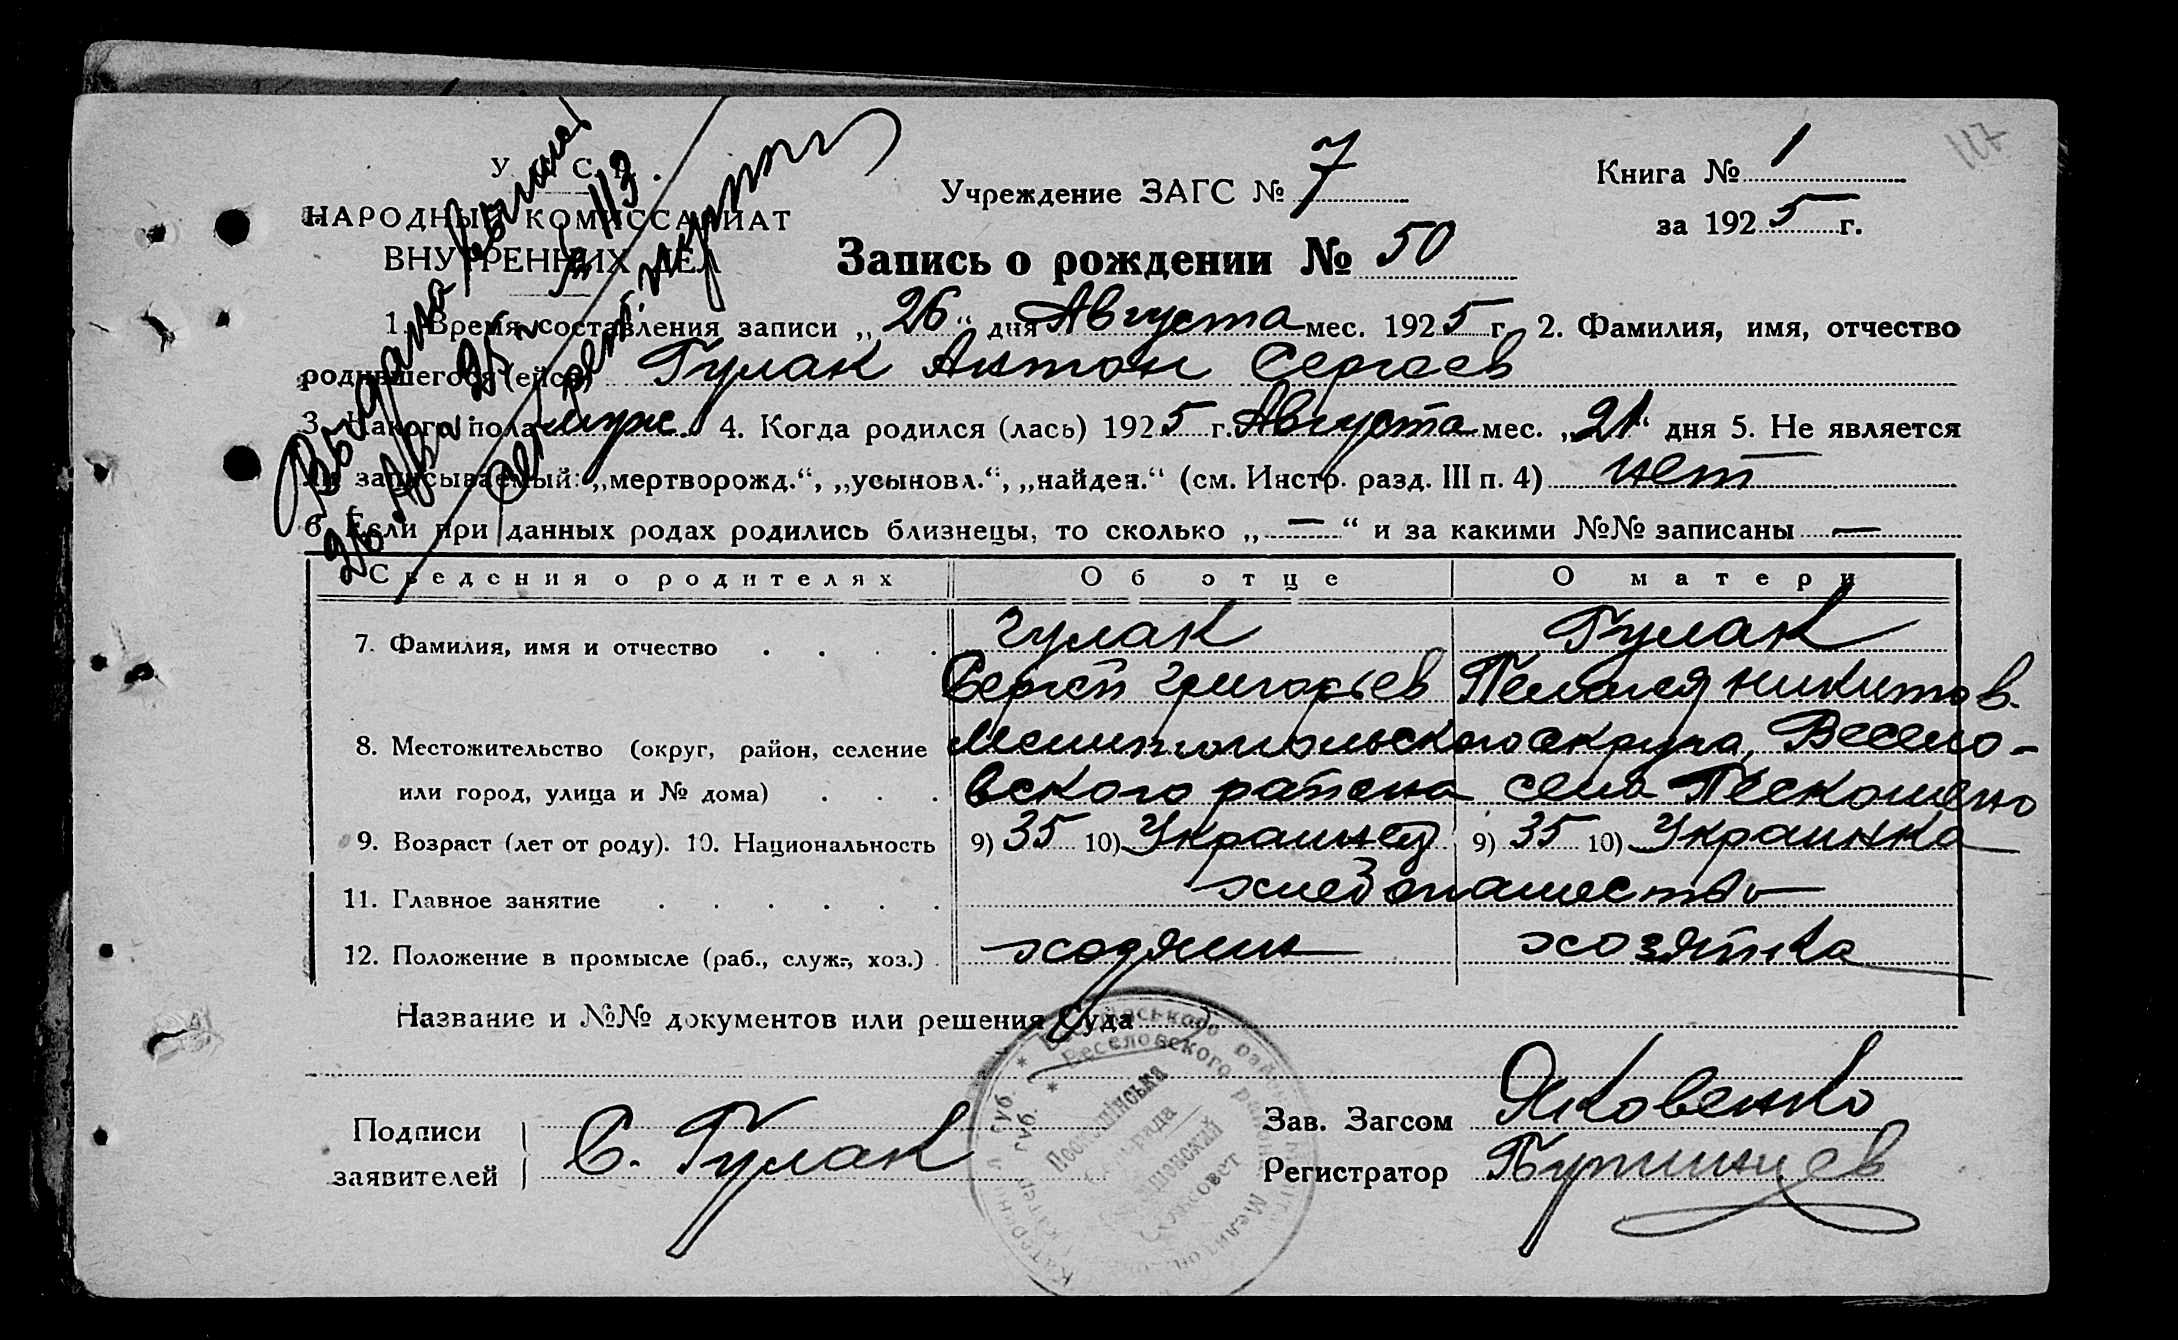 117
У. С. С. Р.
НАРОДНЫЙ КОМИССАРИАТ
ВНУТРЕННИХ ДЕЛ
Учреждение ЗАГС № 7
Книга № 1
за 1925 г.
Запись о рождении № 50
Выдана выпись
№ 113
26 Авг 25 г.
1. Время составления записи „26“ дня Августа мес. 1925 г. 2. Фамилия, имя, отчество
родившегося (ейся) Гулак Антон Сергеев
3. Какого пола муж. 4. Когда родился (лась) 1925 г. Августа мес. „21“ дня 5. Не является
ли записываемый: „мертворожд.“, „усыновл.“, „найден.“ (см. Инстр. разд. III п. 4) нет
6. Если при данных родах родились близнецы, то сколько „—“ и за какими №№ записаны —
Сведения о родителях Об отце О матери
7. Фамилия, имя и отчество . . . . Гулак Гулак
Сергей Григорьев Пелагея Никитов.
8. Местожительство (округ, район, селение Мелитопольского округа, Весело-
или город, улица и № дома) . . . вского района села Пескошено
9. Возраст (лет от роду). 10. Национальность 9) 35 10) Украинец 9) 35 10) Украинка
11. Главное занятие . . . . . . хлебопашество
12. Положение в промысле (раб., служ., хоз.) . хозяин хозяйка
Название и №№ документов или решения Суда
Веселовського
Веселовского
Подписи
заявителей
С. Гулак
Зав. Загсом Яковенко
Регистратор